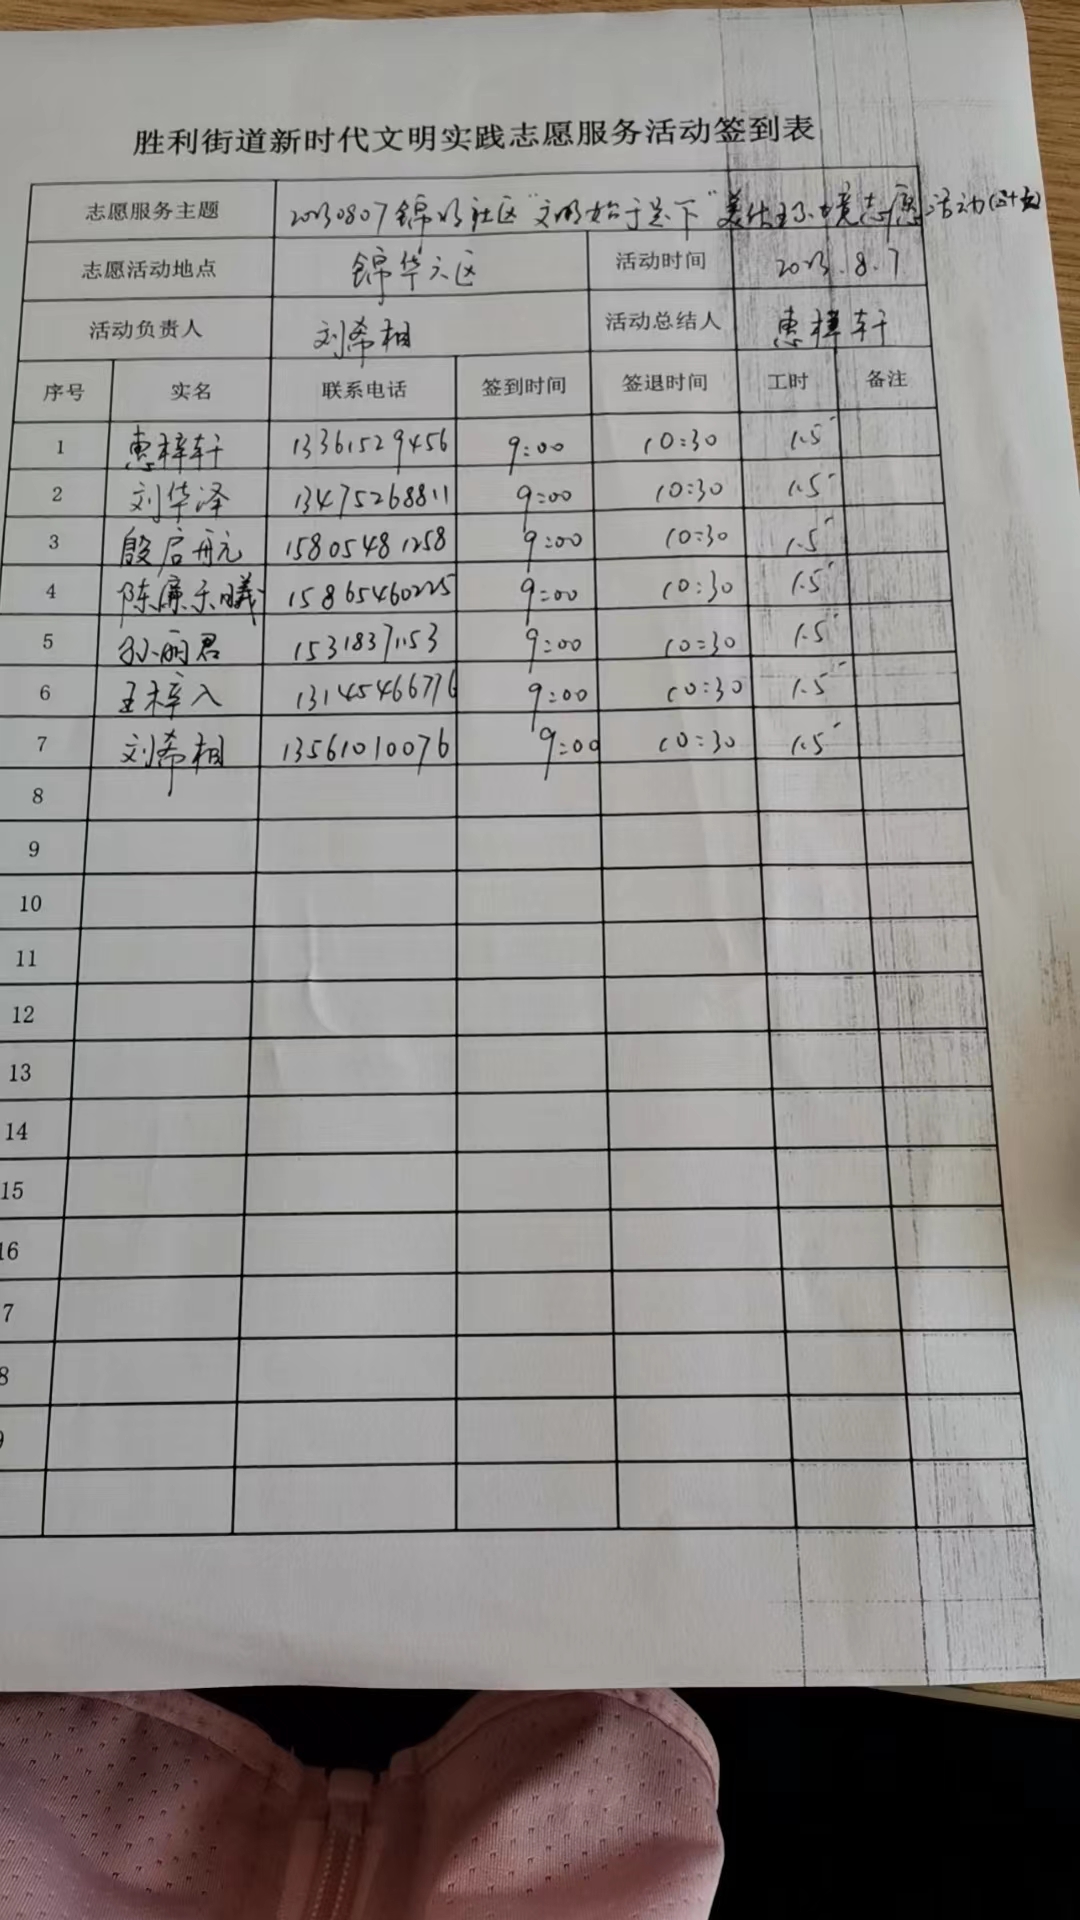 胜利街道新时代文明实践志愿服务活动签到表
志愿服务主题 20230807锦城社区“文明始于足下”美化环境志愿活动
志愿活动地点 锦华六区 活动时间 2023.8.7
活动负责人 刘希相 活动总结人 惠梓轩
序号 实名 联系电话 签到时间 签退时间 工时 备注
1 惠梓轩 13361529456 9:00 10:30 1.5
2 刘华泽 13475268811 9:00 10:30 1.5
3 殷启航 15805481258 9:00 10:30 1.5
4 陈廉禾曦 15865460225 9:00 10:30 1.5
5 孙丽君 15318371153 9:00 10:30 1.5
6 王梓入 13145466776 9:00 10:30 1.5
7 刘希相 13561010076 9:00 10:30 1.5
8
9
10
11
12
13
14
15
16
7
8
9